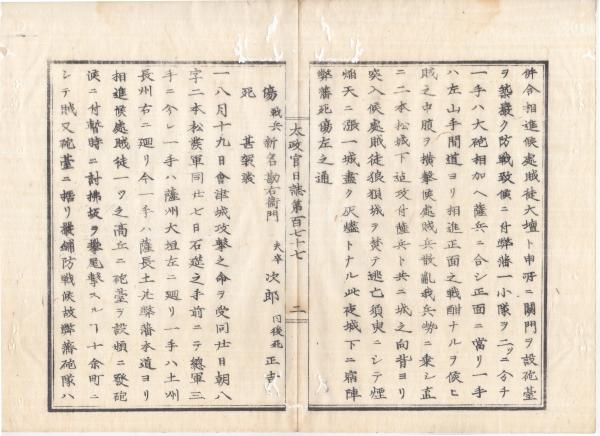 併令相進候處賊徒大壇ト申所ニ關門ヲ設砲臺
ヲ築嚴ク防戰致候ニ付弊藩一小隊ヲ二ツニ分チ
一手ハ大砲相加ヘ薩兵ニ合シ正面ニ當リ一手
ハ左山手間道ヨリ相進正面之戰酣ナルヲ候ヒ
賊之中腹ヲ横撃候處賊兵散亂我兵勢ニ乗シ直
ニ二本松城下迄攻付薩兵ト共ニ城之向背ヨリ
突入候處賊徒狼狽城ヲ焚テ逃亡須臾ニシテ煙
焔天ニ漲一城盡ク灰燼トナル此夜城下ニ宿陣
弊藩死傷左之通
太政官日誌第百七十七 二
傷 戰兵 新名勘右衛門 夫卒 次郎 同後死 正吉
死 甚袈裟
一八月十九日會津城攻撃之命ヲ受同廿日朝八
字二本松發軍同廿七日石莚之手前ニテ總軍三
手ニ分レ一手ハ薩州大垣左ニ廻リ一手ハ土州
長州右ニ廻リ今一手ハ薩長土弊藩本道ヨリ
相進候處賊徒一ツ之高丘ニ砲臺ヲ設頻ニ發砲
候ニ付暫時ニ討拂坂ヲ攀尾撃スルヿ十余町ニ
シテ賊又砲臺ニ據リ嚴鋪防戰候故弊藩砲隊ハ